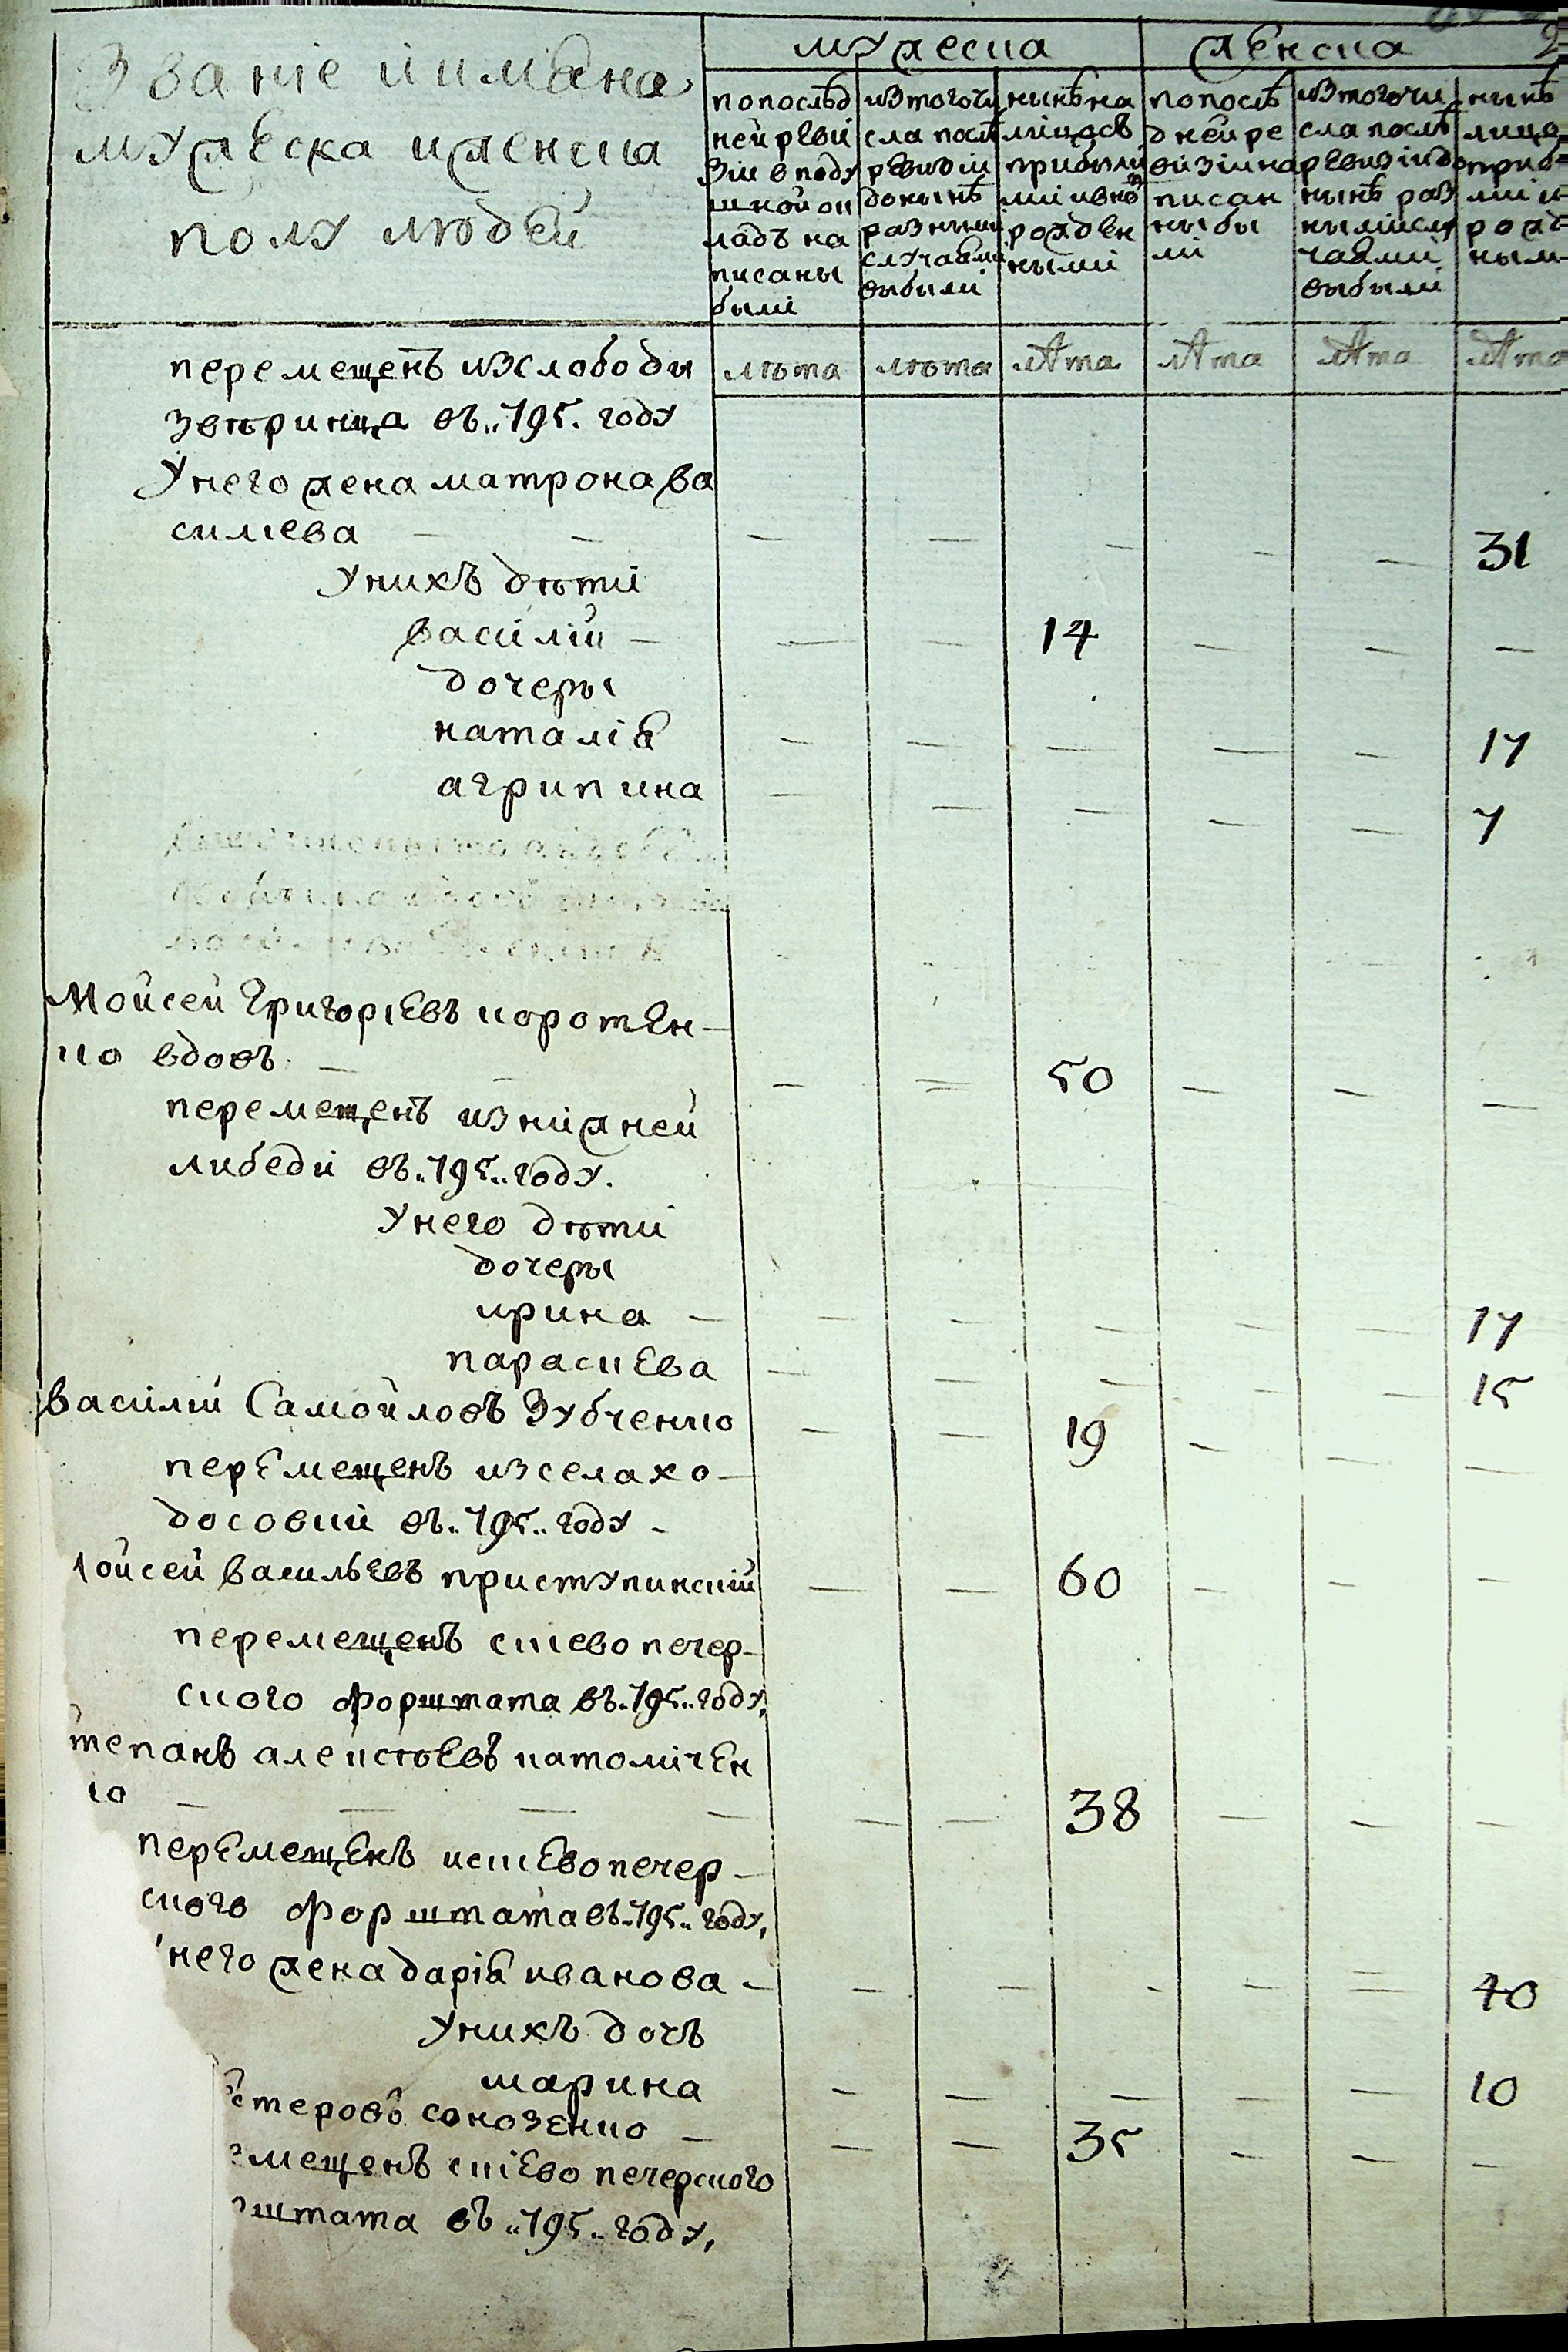 Званіе иимяна
мужеска иженска
полу людей
мужеска
женска
попослѣд
ней реви
зіи вподу
шной ок
ладъ на
писаны
были
изтогочи
сла послѣ
ревизіи
донынѣ
разными
случаями
выбыли
нынѣна
лицось
прибылы
ми ивно
рожден
ными
попослѣ
дней ре
визіина
писан
ны бы
ли
изтогочи
сла послѣ
ревизіидо
нынѣ раз
нымислу
чаями
выбыли
нынѣ
лицо
приб
ми и
рожд
ным
лѣта лѣта лѣта лѣта лѣта лѣта
перемещенъ изслободы
звѣринца въ..795. году
Унего жена матрона ва
силиева — — — — — — — 31
Унихъ дѣти
василій — — — 14 — — —
дочеры
наталія — — — — — 17
агрипина — — — — — 7
Мойсей Григоріевъ коротен—
ко вдовъ — — — = 50 — — —
перемещенъ изнижней
либеди въ..795..году.
Унего дѣти
дочеры
ирина — — — — — — 17
параскева — — — — — 15
василій Самойловъ Зубченко — — 19 — — —
перемещенъ изселахо—
досовки въ..795..году -
ойсей васильевъ приступинскій — — 60 — — —
перемещенъ скиево печер—
ского форштата въ..795..году,
тепанъ алексѣевъ католичен
ко — — — — — — 38 — — —
перемещенъ искиевопечер—
ского форштата въ..795..году,
него жена дарія иванова - — — - — = 40
Унихъ дочъ
марина — — — — — 10
стеровъ сокозенко — — — 35 — — —
мещенъ скіево печерского
штата въ..795..году,